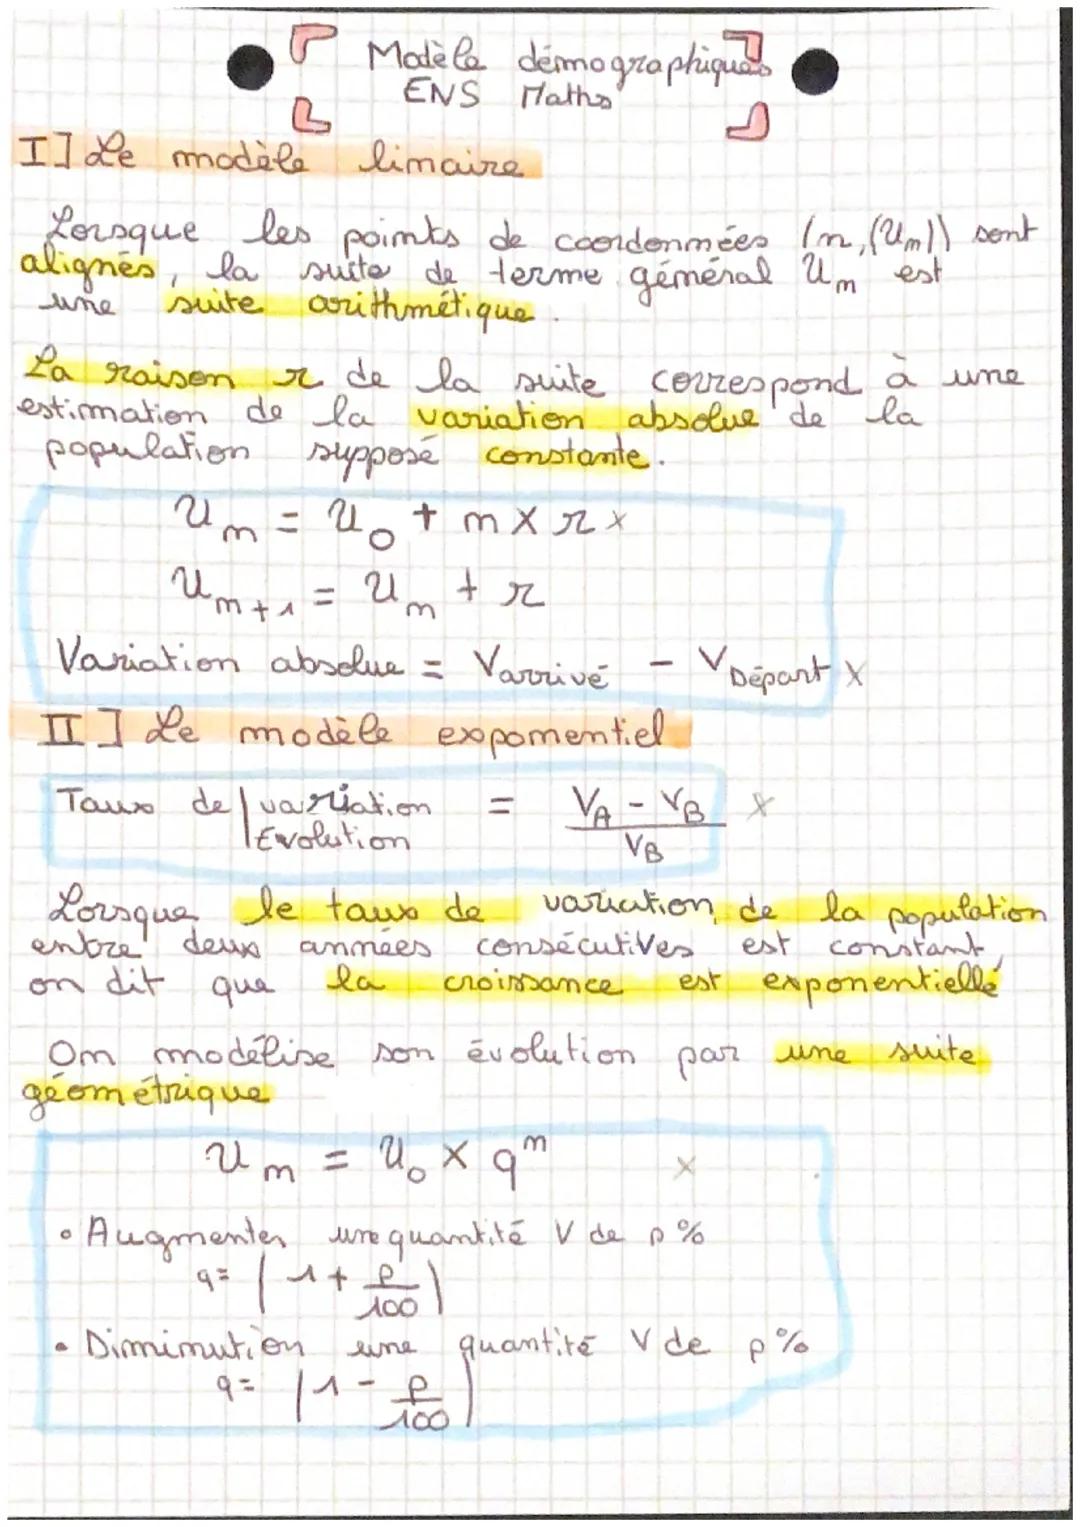 Modèle démographiques
ENS Maths
I] Le modèle linéaire
Lorsque les points de coordonnées (n,(Un)) sont
alignés, la suite de terme général Un est
une suite arithmétique.
La raison r de la suite correspond à une
estimation de la variation absolue de la
population supposé constante.
Un = U0 + n x r x
Un+1 = Un + r
Variation absolue = Varrivé - VDépart x
II] Le modèle exponentiel
Taux de | variation = (VA - VB) / VB x
Evolution
Lorsque le taux de variation de la population
entre deux années consécutives est constant,
on dit que la croissance est exponentielle
On modélise son évolution par une suite
géométrique
Un = U0 x q^n x
• Augmenter une quantité V de p%
q = (1 + p/100)
• Diminution une quantité V de p%
q = (1 - p/100)